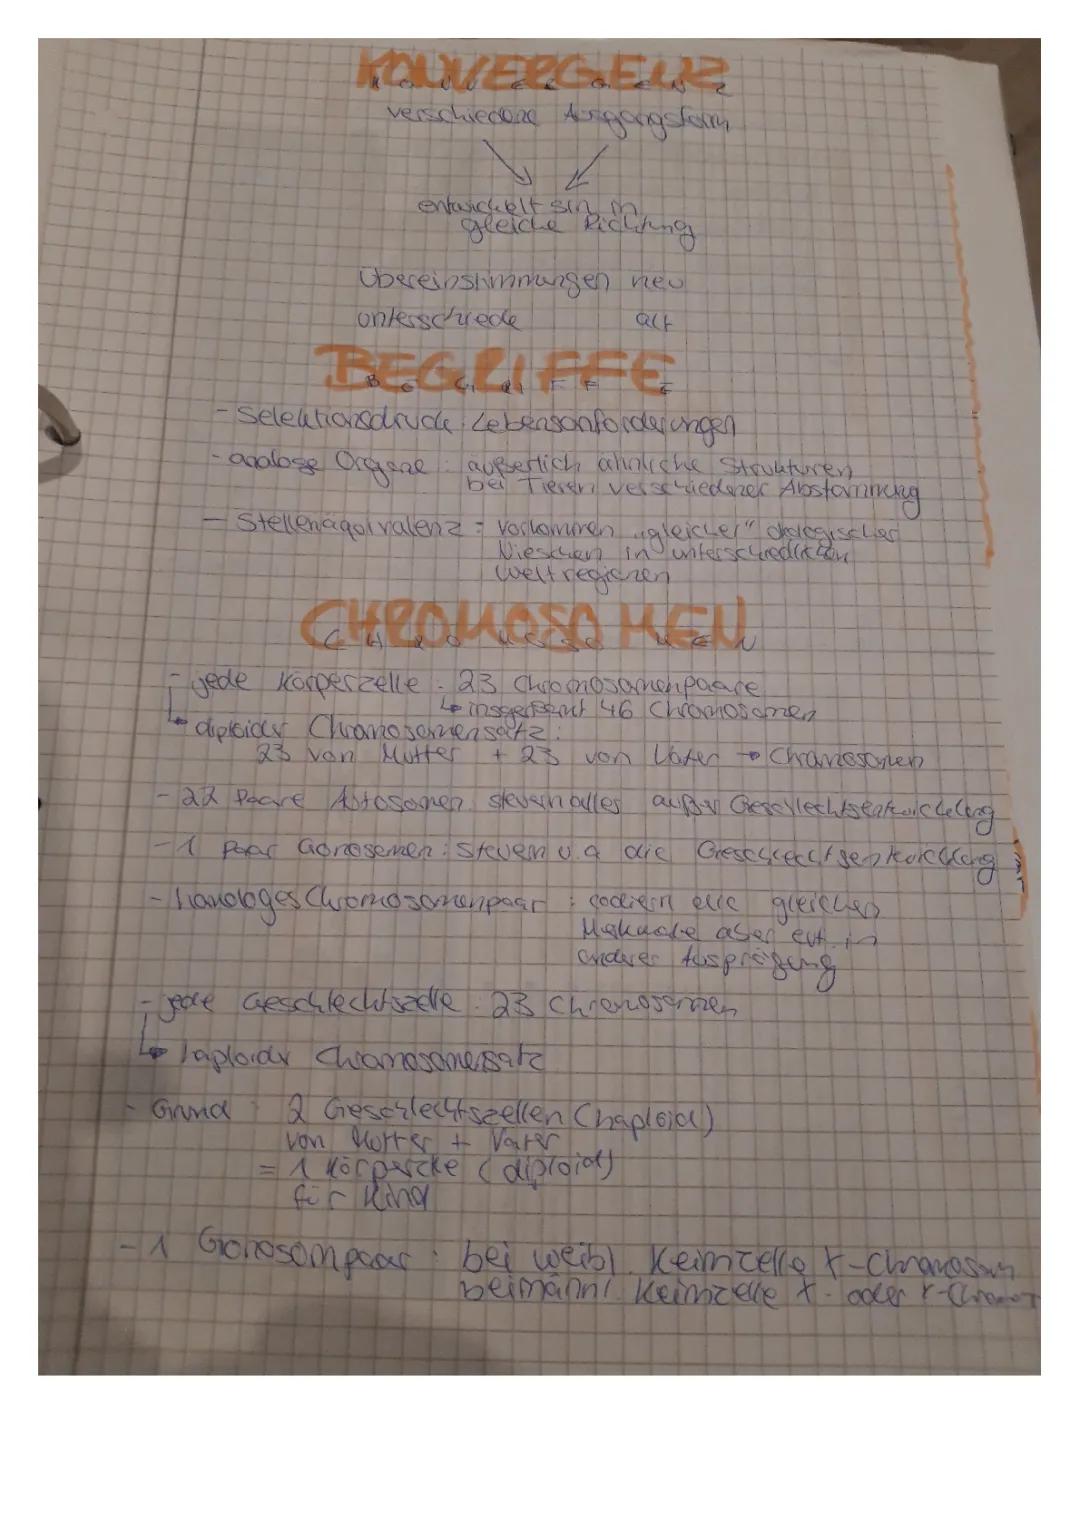 KONVERGENZ
verschiedene Ausgangsform
entwickelt sich in
gleiche Richtung
Übereinstimmungen neu
unterschiede alt
BEGRIFFE
- Selektionsdruck: Lebensanforderungen
- analoge Organe: äußerlich ähnliche Strukturen
bei Tieren verschiedener Abstammung
- Stellenäquivalenz = vorkommen "gleicher" ökologischer
Nieschen in unterschiedlichen
weltregionen
CHROMOSOMEN
- jede Körperzelle: 23 Chromosomenpaare
↳ insgesamt 46 Chromosomen
↳ diploider Chromosomensatz:
23 von Mutter + 23 von Vater → Chromosomen
- 22 Paare Autosomen steuern alles außer Geschlechtsentwicklung
- 1 Paar Gonosomen: steuern u.a die Geschlechtsentwicklung
- homologes Chromosomenpaar: codiern die gleichen
Merkmale aber evt. in
anderer Ausprägung
- jede Geschlechtszelle: 23 Chromosomen
↳ haploider Chromosomensatz
- Grund: 2 Geschlechtszellen (haploid)
von Mutter + Vater
= 1 Körperzelle (diploid)
für Kind
- 1 Gonosompaar: bei weibl. Keimzelle X-Chromosom
bei männl. Keimzelle X- oder Y-Chromos